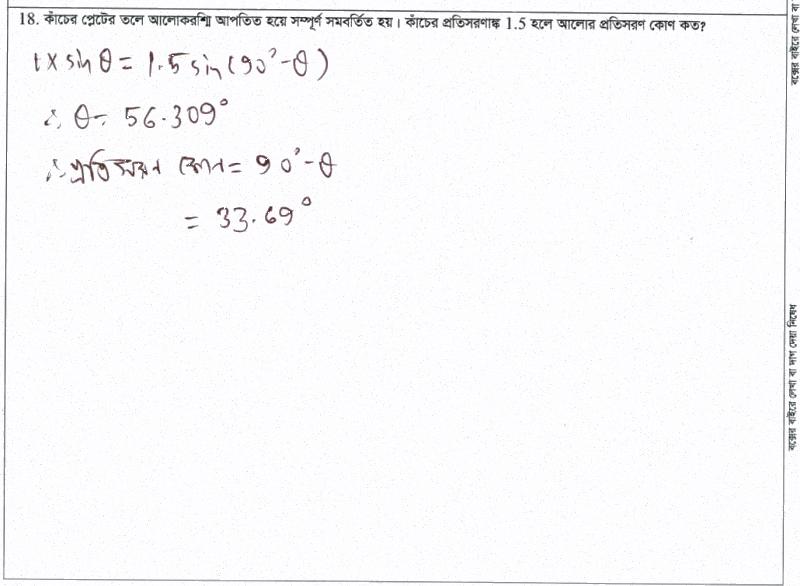 18. কাঁচের প্লেটের তলে আলোকরশ্মি আপতিত হয়ে সম্পূর্ণ সমবর্তিত হয়। কাঁচের প্রতিসরণাঙ্ক 1.5 হলে আলোর প্রতিসরণ কোণ কত?
1 × sin θ = 1.5 sin (90° - θ)
∴ θ = 56.309°
∴ প্রতিসরণ কোন = 90° - θ
= 33.69°
বক্সের বাইরে লেখা বা
বক্সের বাইরে লেখা বা দাগ দেয়া নিষেধ